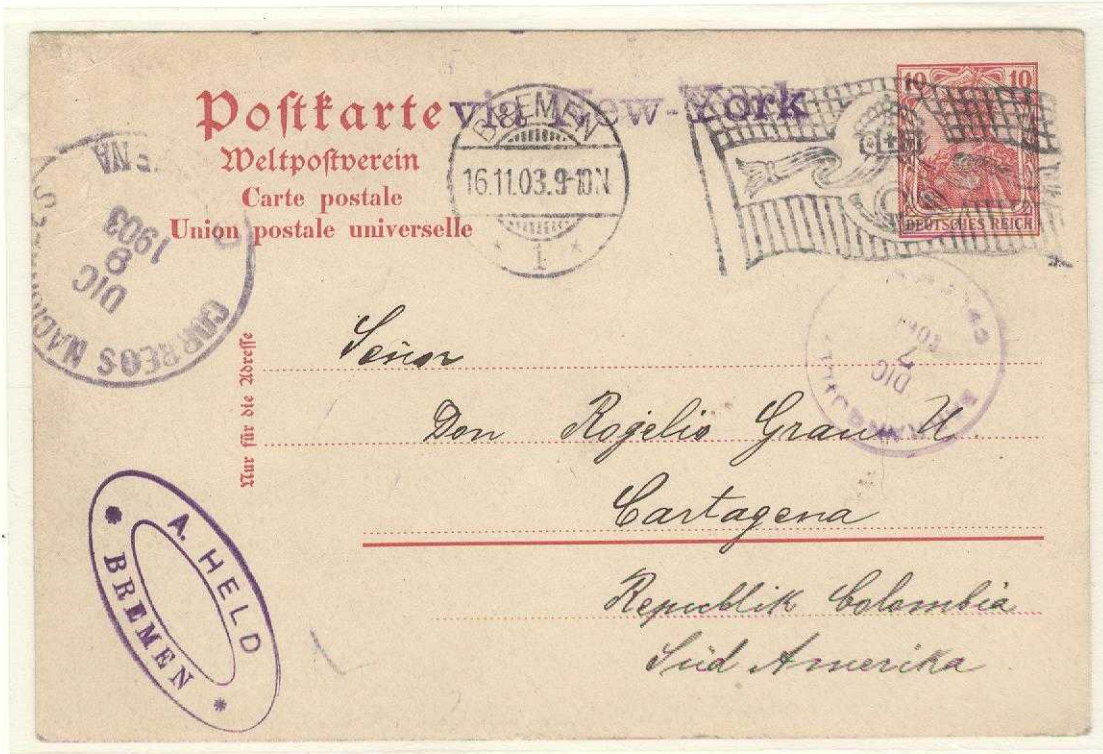 Postkarte via New-York
Weltpostverein
Carte postale
Union postale universelle
BREMEN
16.11.03.9-10N
* 1 *
10 10
DEUTSCHES REICH
CORREOS NACIONALES
DIC
8
1903
ENA
DIC
7
Nur für die Adresse
Señor
Don Rogelio Grau U.
Cartagena
Republik Colombia
Süd Amerika
A. HELD
* BREMEN *